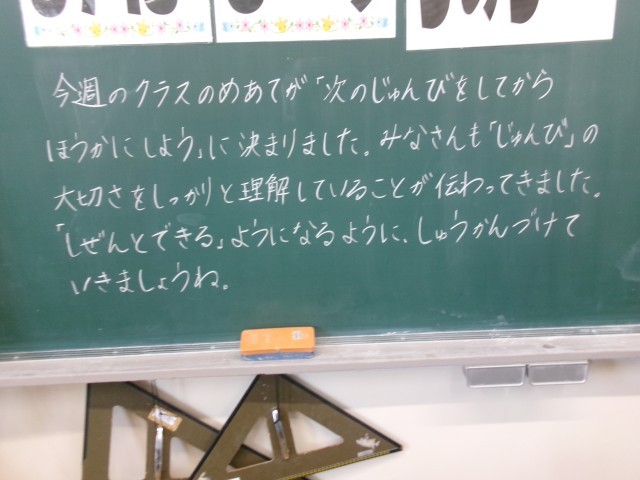 今週のクラスのめあてが「次のじゅんびをしてから
ほうかにしよう」に決まりました。みなさんも「じゅんび」の
大切さをしっかりと理解していることが伝わってきました。
「しぜんとできる」ようになるように、しゅうかんづけて
いきましょうね。